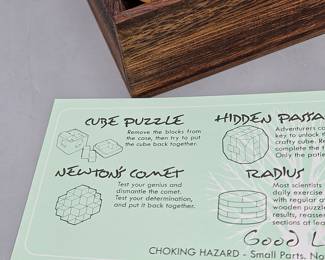 CUBE PUZZLE
Remove the blocks from
the case, then try to put
the cube back together.
HIDDEN PASSA
Adventurers ca
key to unlock t
crafty cube. Re
complete the t
Only the patie
NEWTON'S COMET
Test your genius and
dismantle the comet.
Test your determination,
and put it back together.
RADIUS
Most scientists
daily exercise
with regular a
wooden puzzle
results, reasse
sections at lea
Good L
CHOKING HAZARD - Small Parts. No